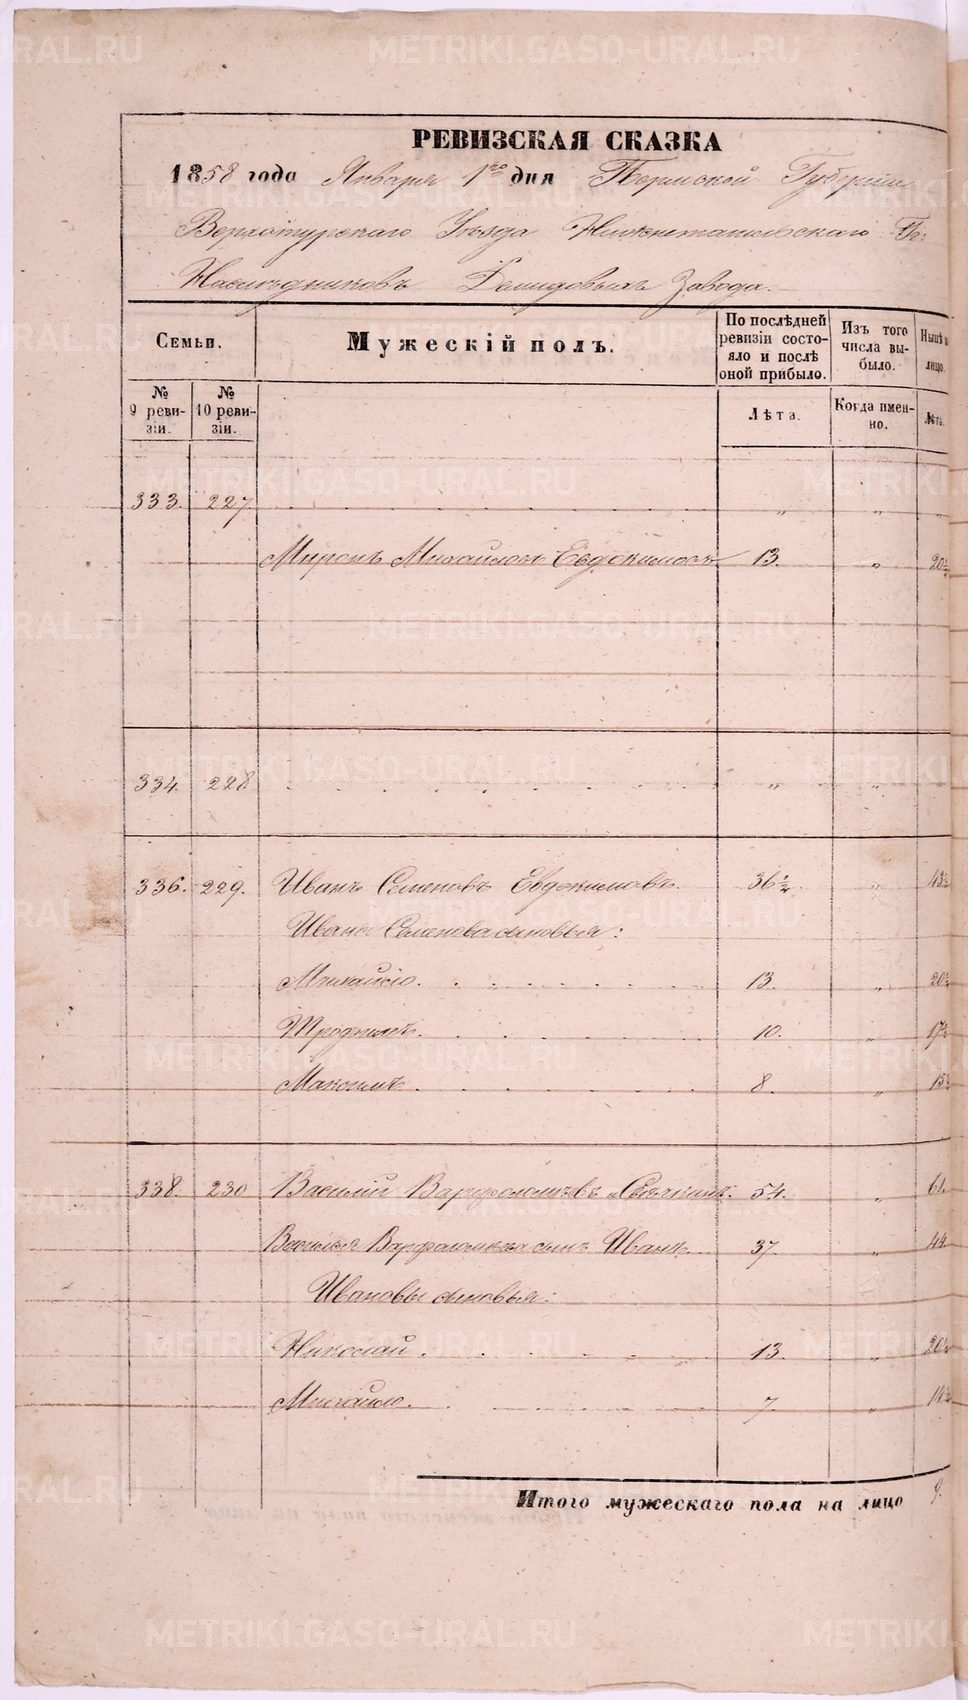 METRIKI.GASO-URAL.RU
РЕВИЗСКАЯ СКАЗКА
1858 года Января 1го дня Пермской Губернии
Верхотурскаго Уѣзда Нижнетагильскаго Гг:
Наслѣдниковъ Демидовыхъ завода.
Семьи. Мужескій полъ. По послѣдней ревизіи состояло и послѣ оной прибыло. Изъ того числа выбыло. Нынѣ на лицо.
№ 9 ревизіи. № 10 ревизіи. Лѣта. Когда именно. Лѣта.
333. 227 „ „ „
Миронъ Михайловъ Евдокимовъ 13. „ 20½
334. 228 „ „
336. 229. Иванъ Семеновъ Евдокимовъ. 36½. „ 43½
Ивана Семенова сыновья:
Михайло. 13. „ 20½
10. „ 17½
Максимъ. 8. „ 15½
338. 230 Василій Варфоломѣевъ 54. „ 61.
Василья Варфоломѣева сынъ Иванъ. 37. „ 44.
Ивановы сыновья:
Николай. 13. „ 20½
Михайло. 7. „ 14½
Итого мужескаго пола на лицо 9.